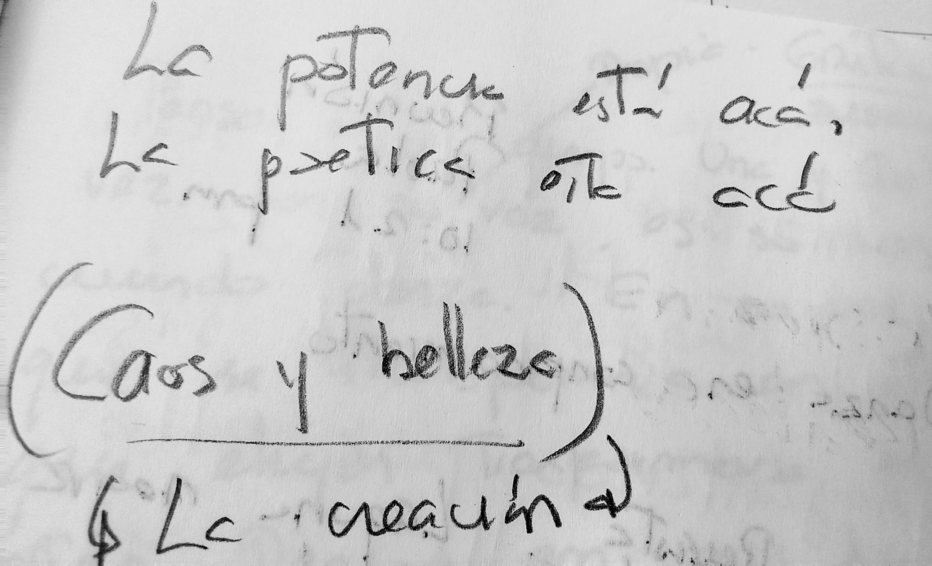 La potencia está acá,
La poetica esta acá
(Caos y belleza)
↳ La creación ↲